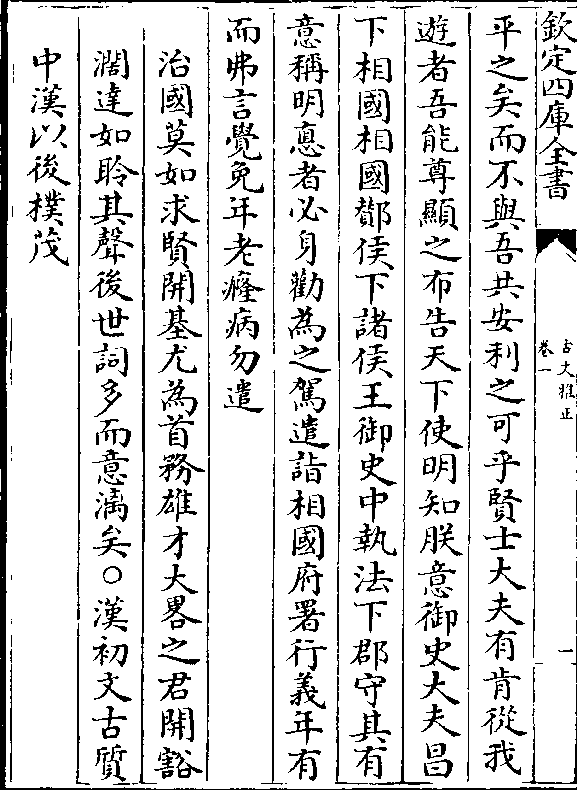 欽定四庫全書
古文雅正
卷一
一
平之矣而不與吾共安利之可乎賢士大夫有肯從我
遊者吾能尊顯之布告天下使明知朕意御史大夫昌
下相國相國酇侯下諸侯王御史中執法下郡守其有
意稱明悳者必身勸為之駕遣詣相國府署行義年有
而弗言覺免年老癃病勿遣
治國莫如求賢開基尤為首務雄才大畧之君開豁
濶達如聆其聲後世詞多而意漓矣○漢初文古質
中漢以後樸茂